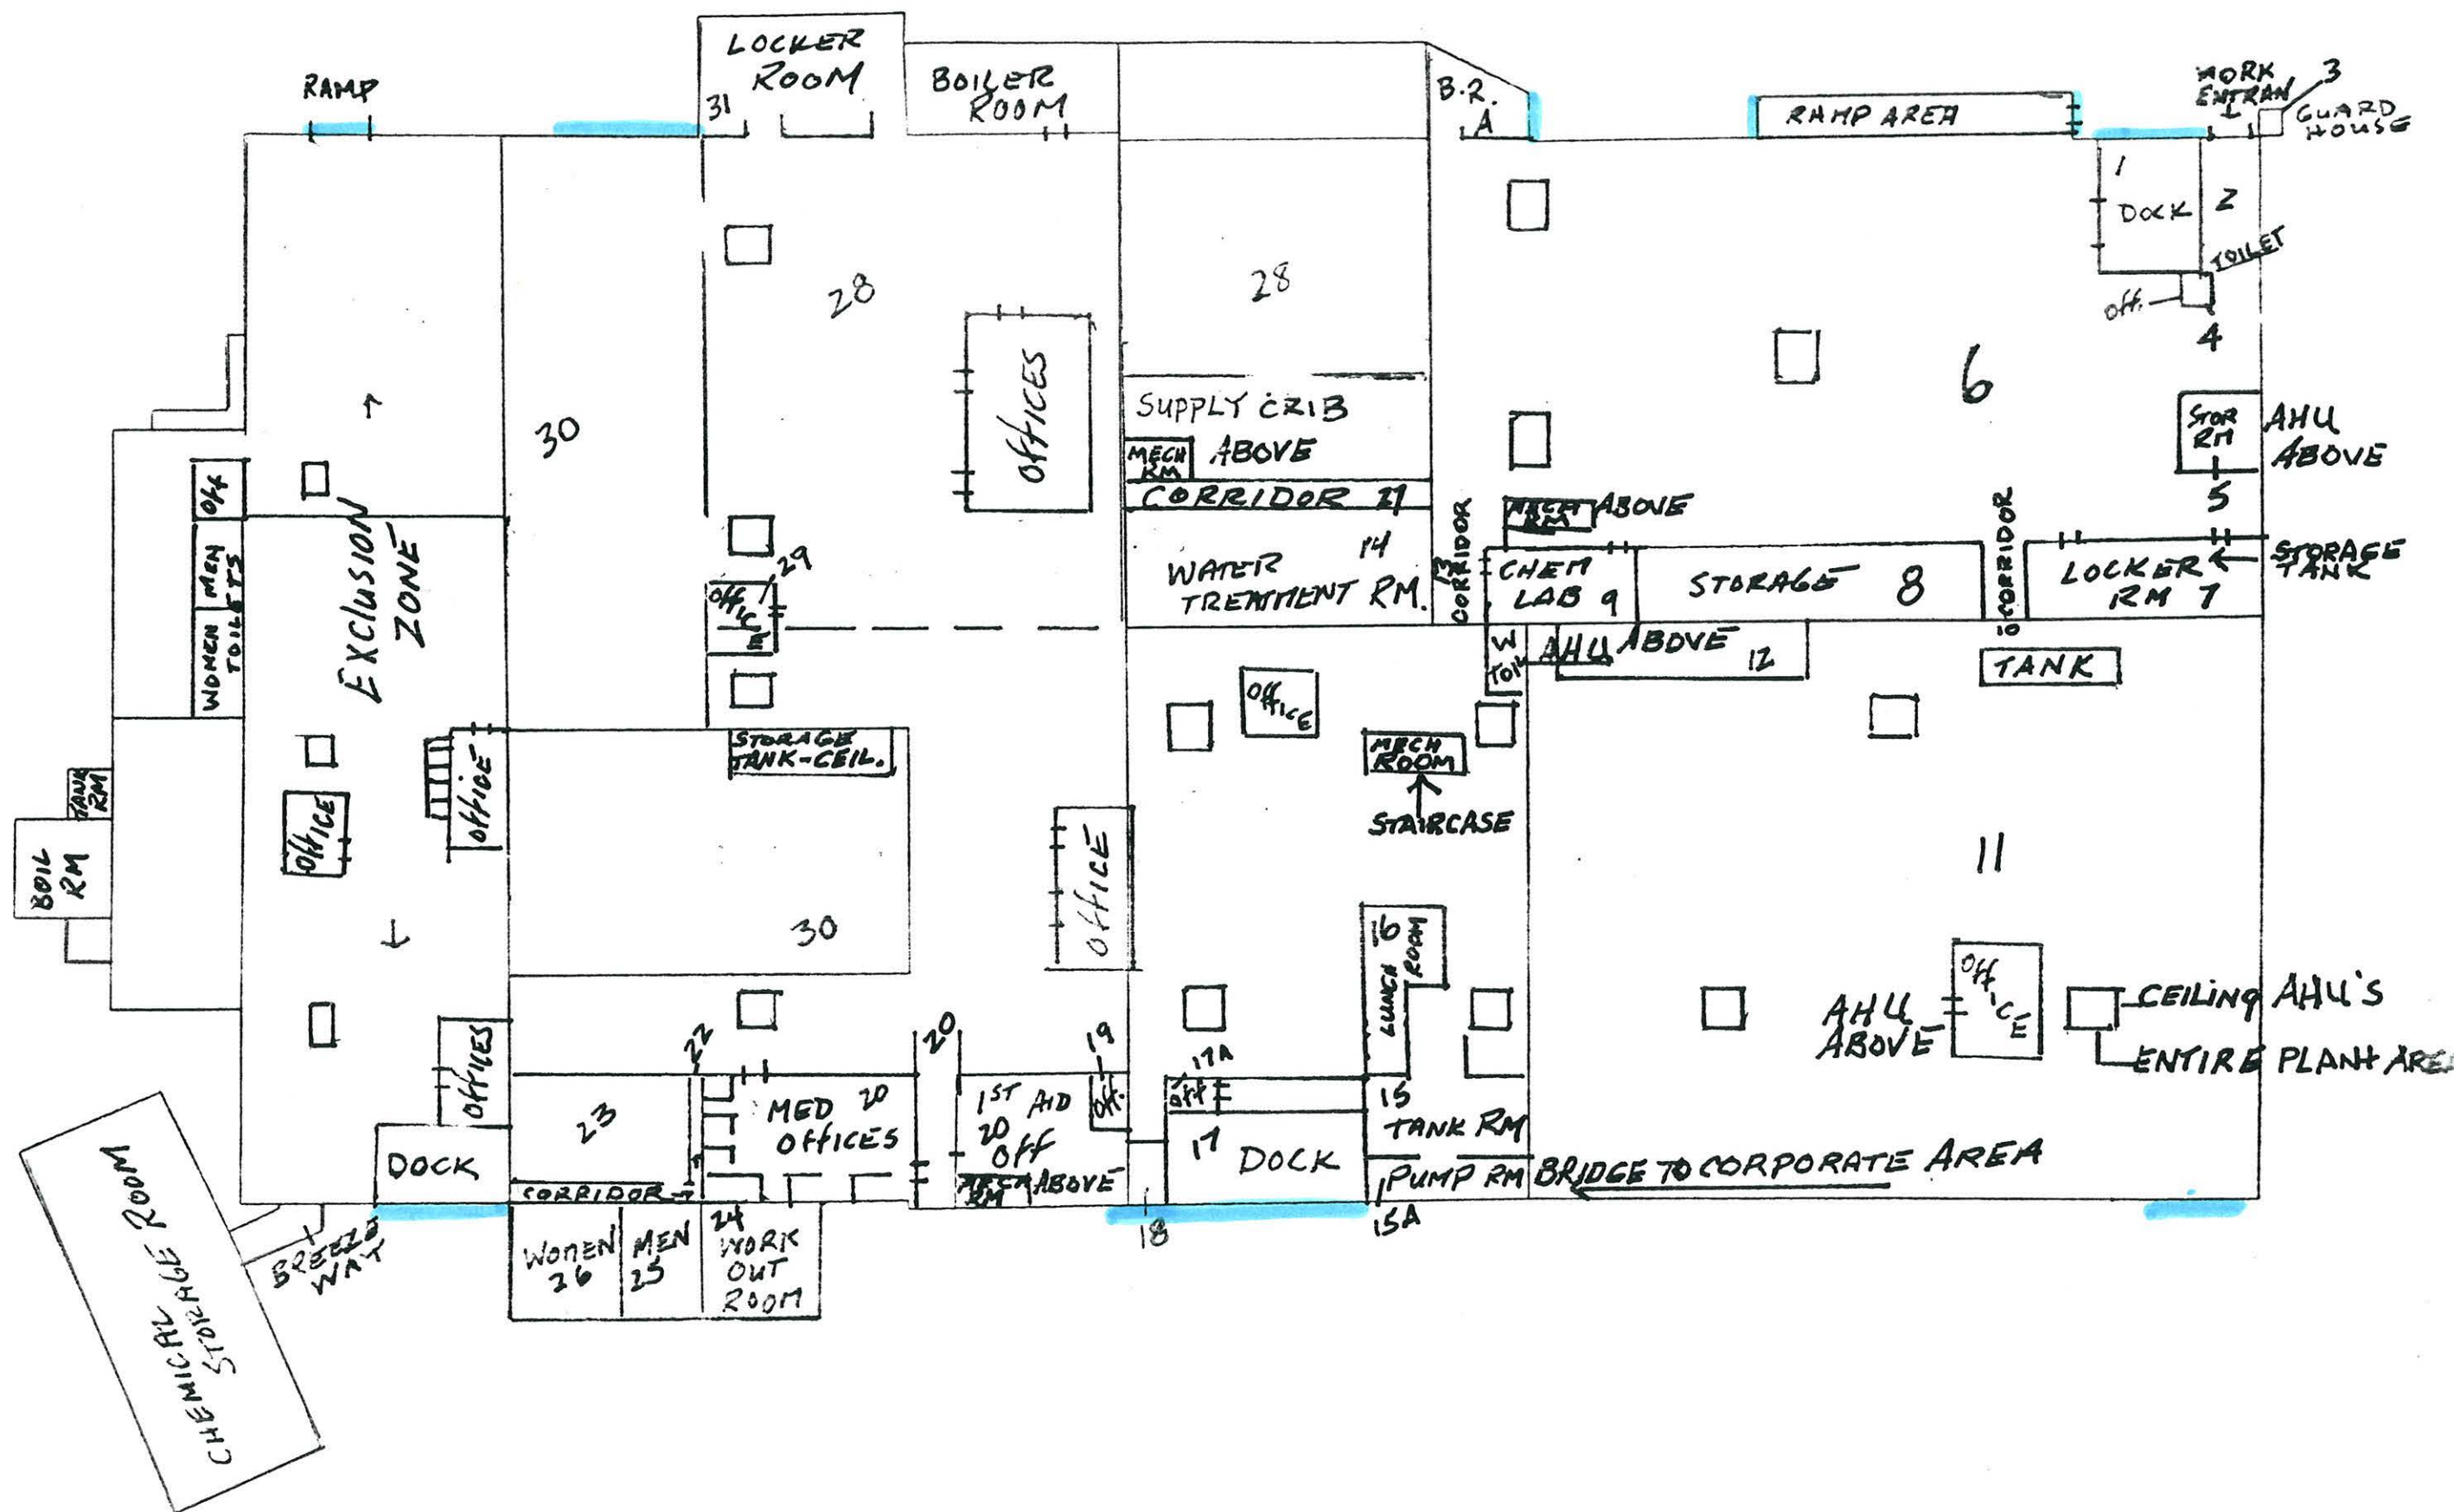 LOCKER
ROOM
31
BOILER
ROOM
RAMP
B.R.
A
RAMP AREA
WORK
ENTRAN
3
GUARD
HOUSE
1
DOCK
2
TOILET
Off.
4
28
28
6
OFFICES
SUPPLY CRIB
ABOVE
MECH
RM
CORRIDOR 27
STOR
RM
AHU
ABOVE
5
30
Off
MEN
WOMEN
TOILETS
EXCLUSION
ZONE
29
OFFICE
14
WATER
TREATMENT RM.
13
CORRIDOR
MECH
RM
ABOVE
CHEM
LAB 9
STORAGE 8
CORRIDOR
10
LOCKER
RM 7
STORAGE
TANK
W
TOI
AHU ABOVE 12
TANK
OFFICE
STORAGE
TANK-CEIL.
MECH
ROOM
STAIRCASE
TANK
RM
BOIL
RM
OFFICE
OFFICE
OFFICE
11
30
16
LUNCH
ROOM
OFFICE
AHU
ABOVE
CEILING AHU'S
ENTIRE PLANT ARE
OFFICES
22
20
19
17A
Off
23
MED 20
OFFICES
1ST AID
20
Off
Off.
MECH
RM
ABOVE
17
DOCK
15
TANK RM
PUMP RM
15A
BRIDGE TO CORPORATE AREA
DOCK
CORRIDOR
18
24
WORK
OUT
ROOM
WOMEN
26
MEN
25
BREEZE
WAY
CHEMICAL
STORAGE ROOM